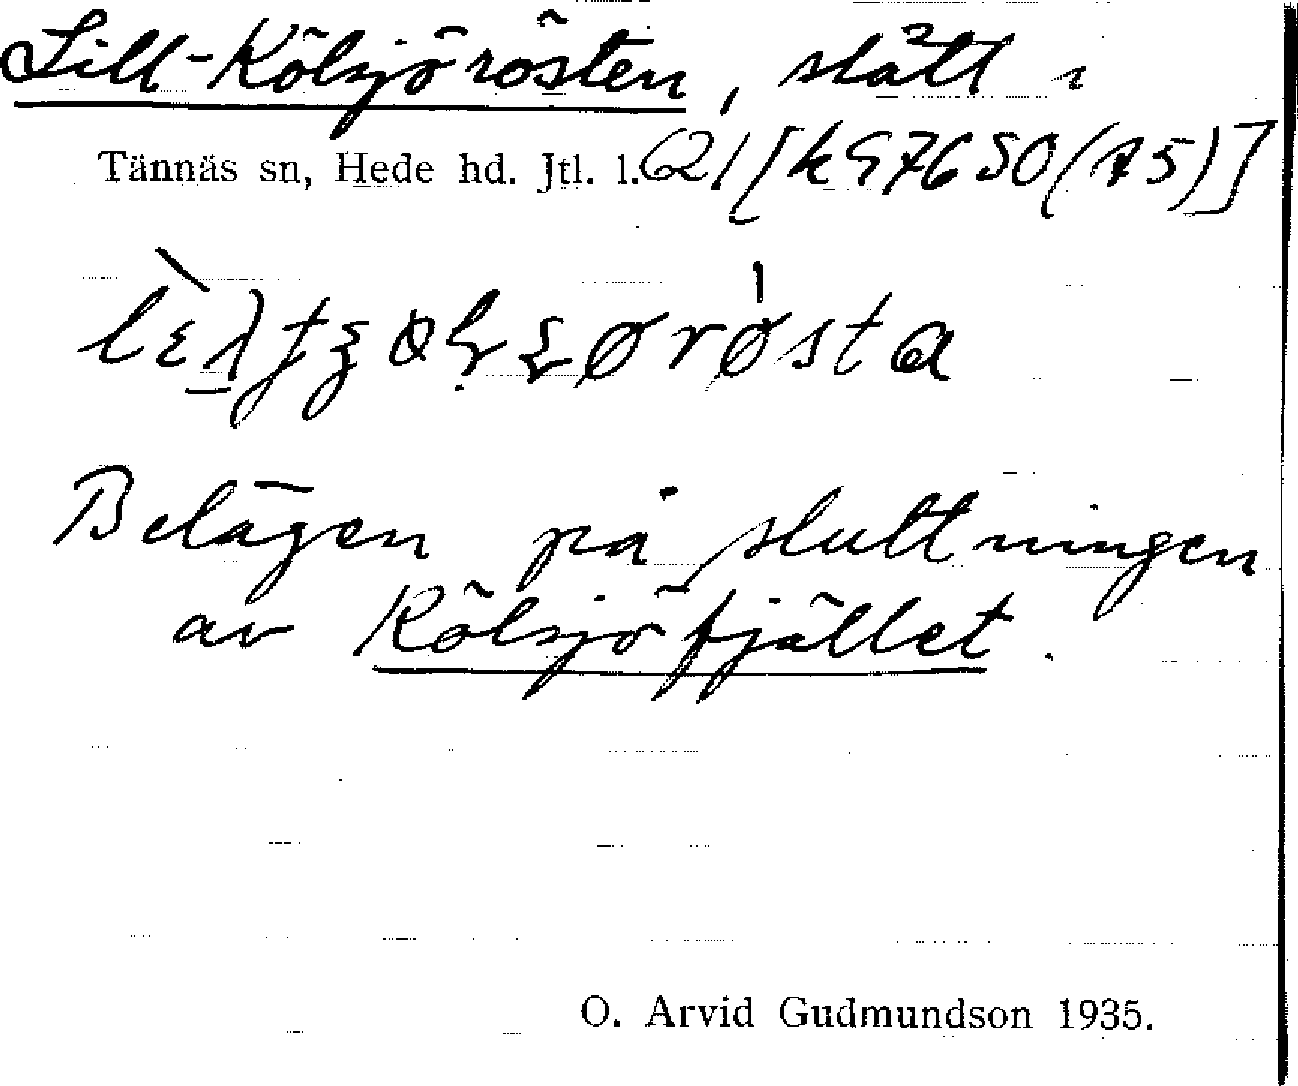 Lill-Kölsjörösten, slått i
Tännäs sn, Hede hd. Jtl. l. 621 [k 97650 (75)]
Belägen på sluttningen
av Kölsjöfjället.
O. Arvid Gudmundson 1935.